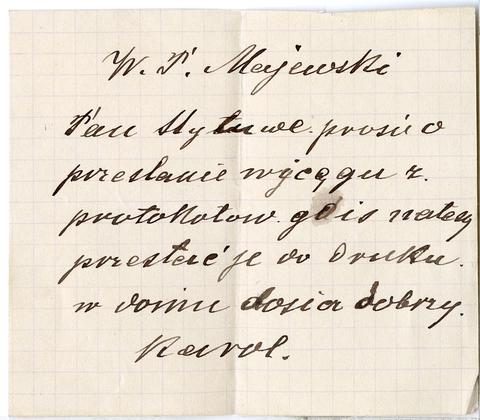 W. P. Majewski
Pan prosi o
przesłanie wyciągu z.
protokołow. gdis należy
przesłać je do druku.
w domu dosia dobrzy.
Karol.